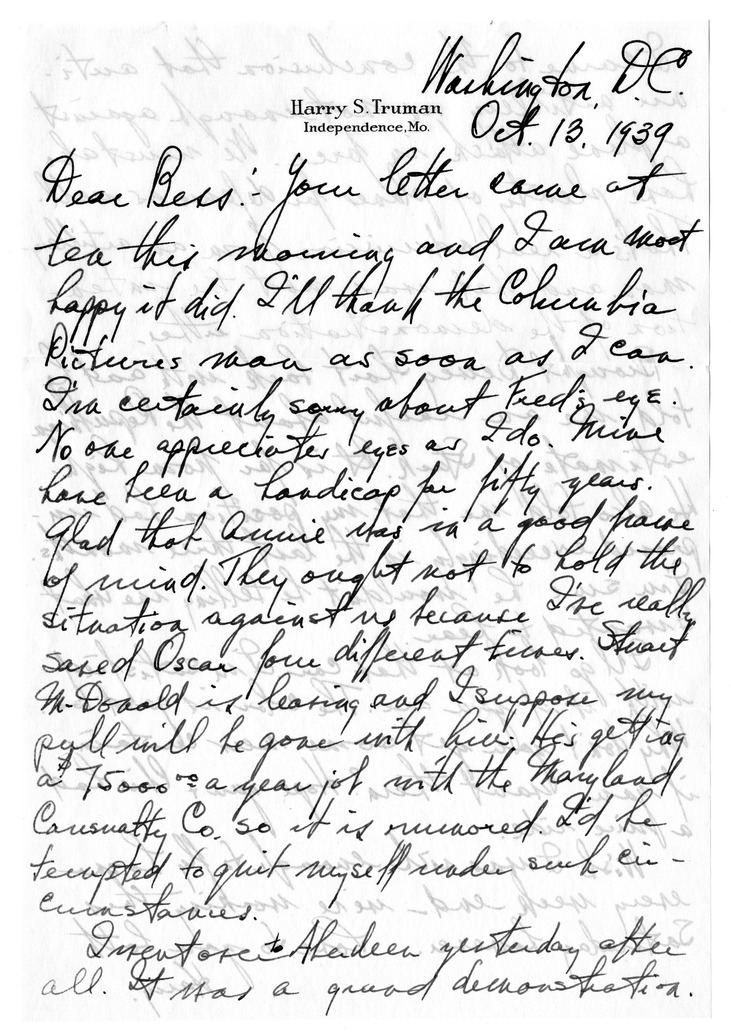 Washington, D.C.
Harry S. Truman
Independence, Mo.
Oct. 13, 1939
Dear Bess:- Your letter came at
ten this morning and I am most
happy it did. I'll thank the Columbia
Pictures man as soon as I can.
I'm certainly sorry about Fred's eye.
No one appreciates eyes as I do. Mine
have been a handicap for fifty years.
Glad that Annie was in a good frame
of mind. They ought not to hold the
situation against us because I've really
saved Oscar four different times. Stuart
McDonald is leaving and I suppose my
pull will be gone with him. He's getting
a $75000.00 a year job with the Maryland
Casualty Co. so it is rumored. I'd be
tempted to quit myself under such cir-
cumstances.
I went over to Aberdeen yesterday after
all. It was a grand demonstration.